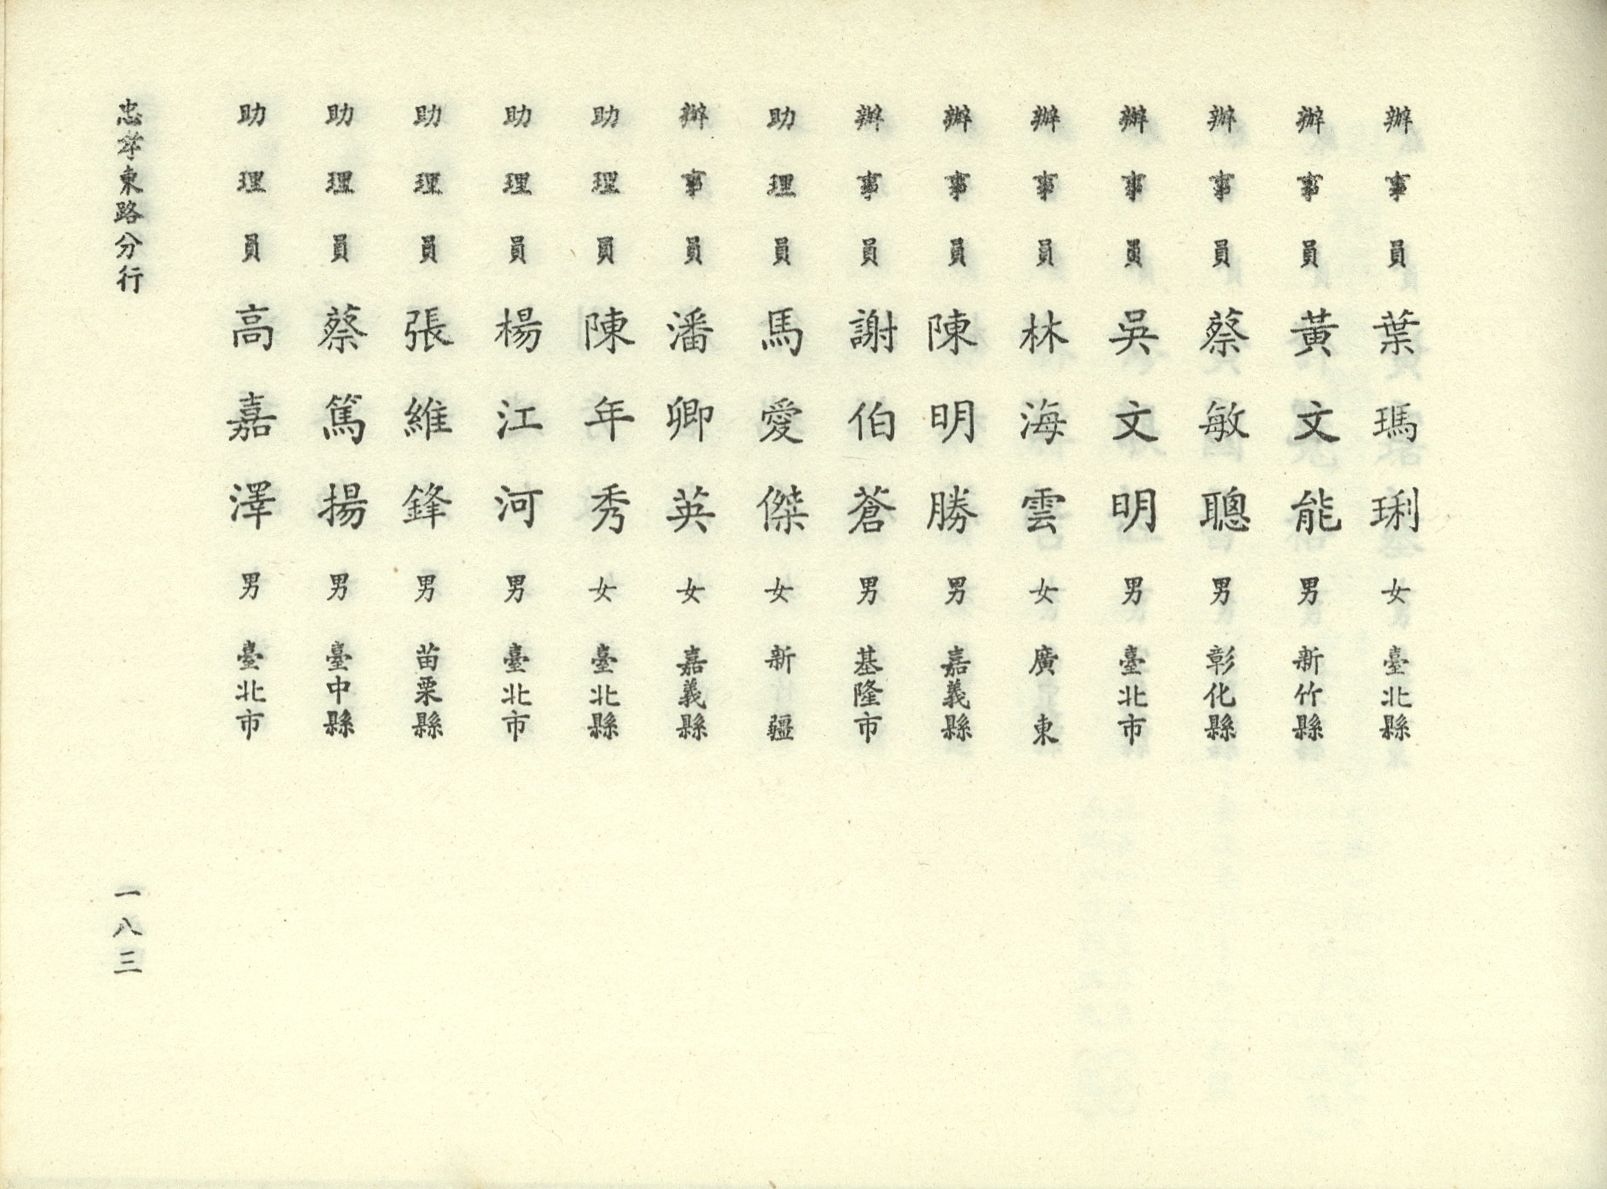 辦事員 葉瑪琍 女 臺北縣
辦事員 黃文能 男 新竹縣
辦事員 蔡敏聰 男 彰化縣
辦事員 吳文明 男 臺北市
辦事員 林海雲 女 廣東
辦事員 陳明勝 男 嘉義縣
辦事員 謝伯蒼 男 基隆市
助理員 馬愛傑 女 新疆
辦事員 潘卿英 女 嘉義縣
助理員 陳年秀 女 臺北縣
助理員 楊江河 男 臺北市
助理員 張維鋒 男 苗栗縣
助理員 蔡篤揚 男 臺中縣
助理員 高嘉澤 男 臺北市
忠孝東路分行 一八三